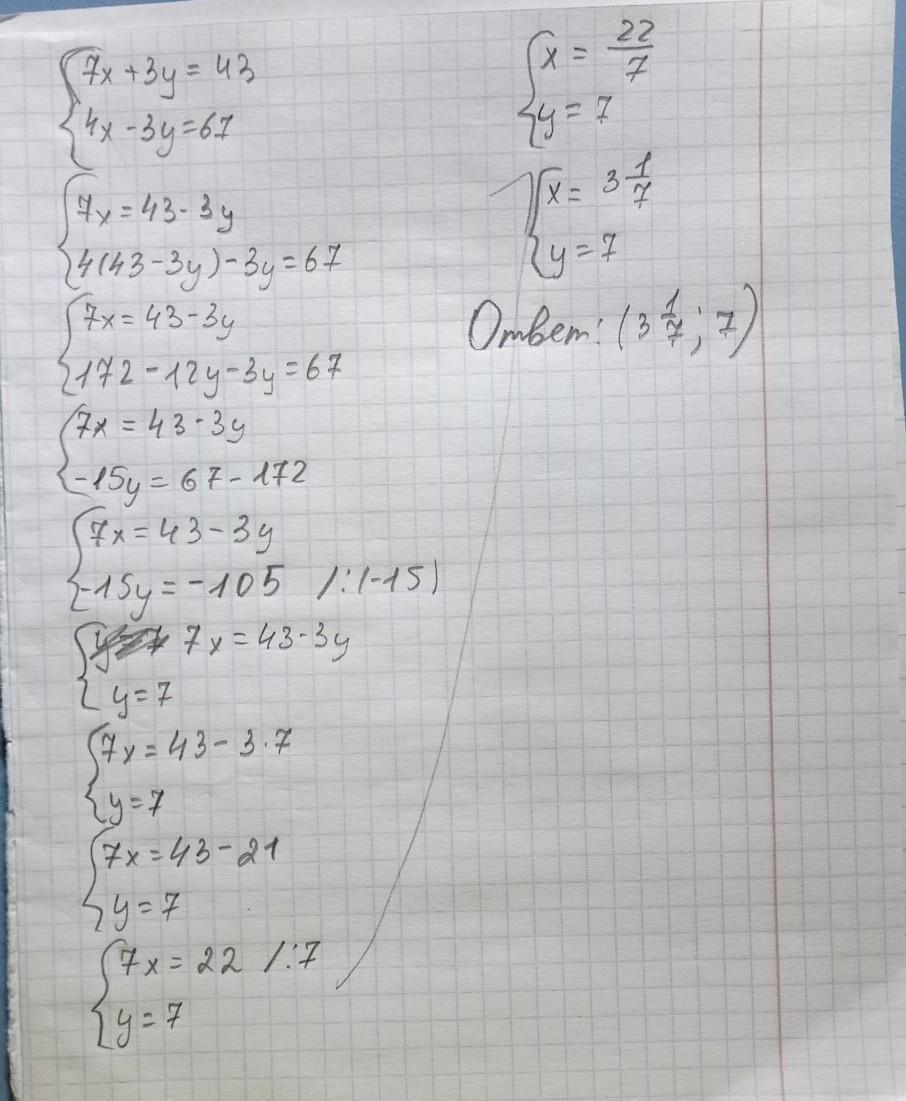 7x + 3y = 43
4x - 3y = 67
7x = 43 - 3y
4(43 - 3y) - 3y = 67
7x = 43 - 3y
172 - 12y - 3y = 67
7x = 43 - 3y
-15y = 67 - 172
7x = 43 - 3y
-15y = -105 /:(-15)
7x = 43 - 3y
y = 7
7x = 43 - 3·7
y = 7
7x = 43 - 21
y = 7
7x = 22 /:7
y = 7
x = 22/7
y = 7
x = 3 1/7
y = 7
Ответ: (3 1/7; 7)